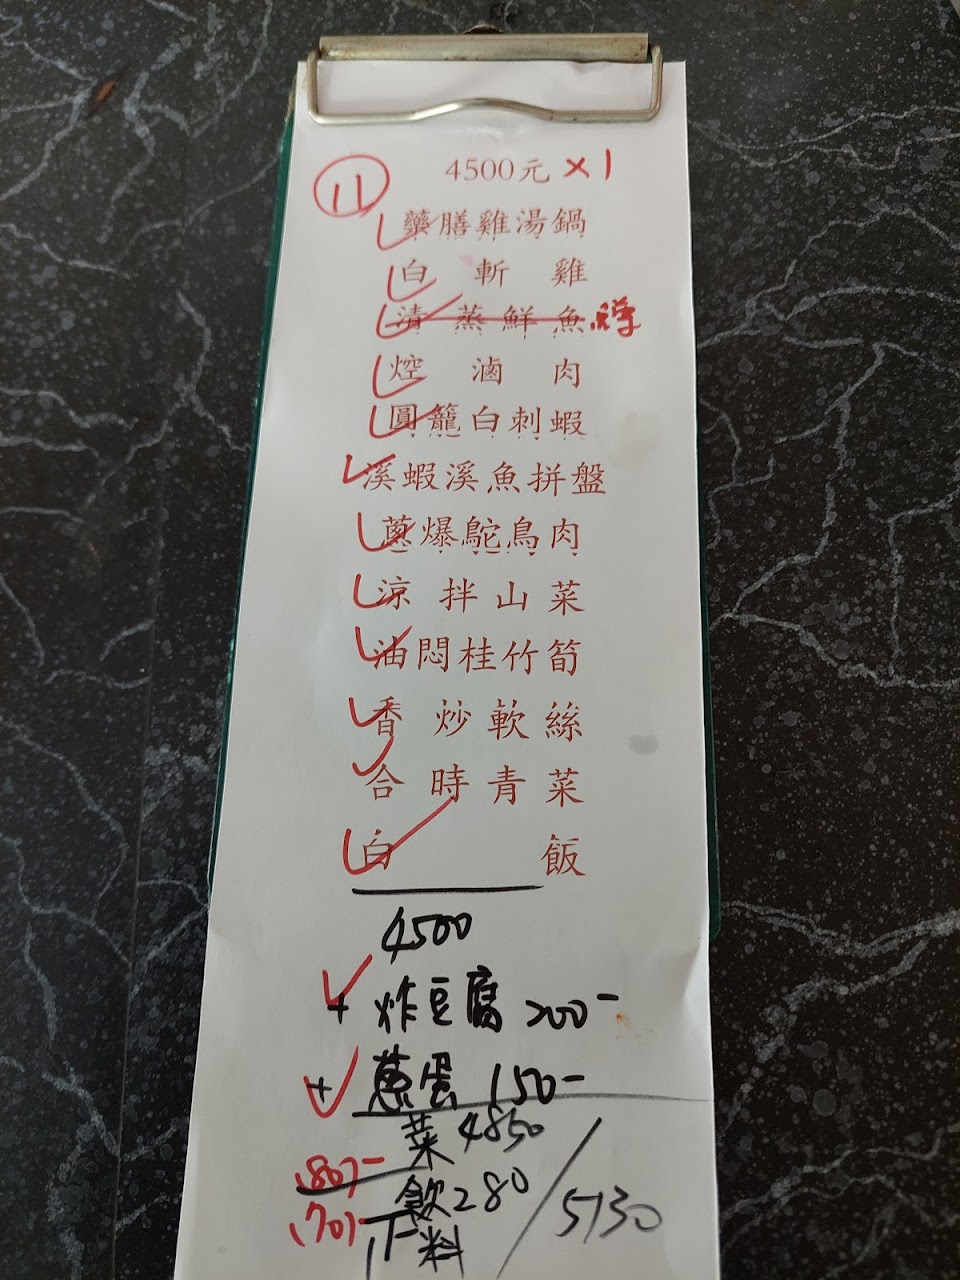 11 4500元 x1
藥膳雞湯鍋
白斬雞
清蒸鮮魚
焢滷肉
圓籠白刺蝦
溪蝦溪魚拼盤
蔥爆鴕鳥肉
涼拌山菜
油悶桂竹筍
香炒軟絲
合時青菜
白飯
4500
+ 炸豆腐 200-
+ 蔥蛋 150-
菜 4850
飲料 280
5130